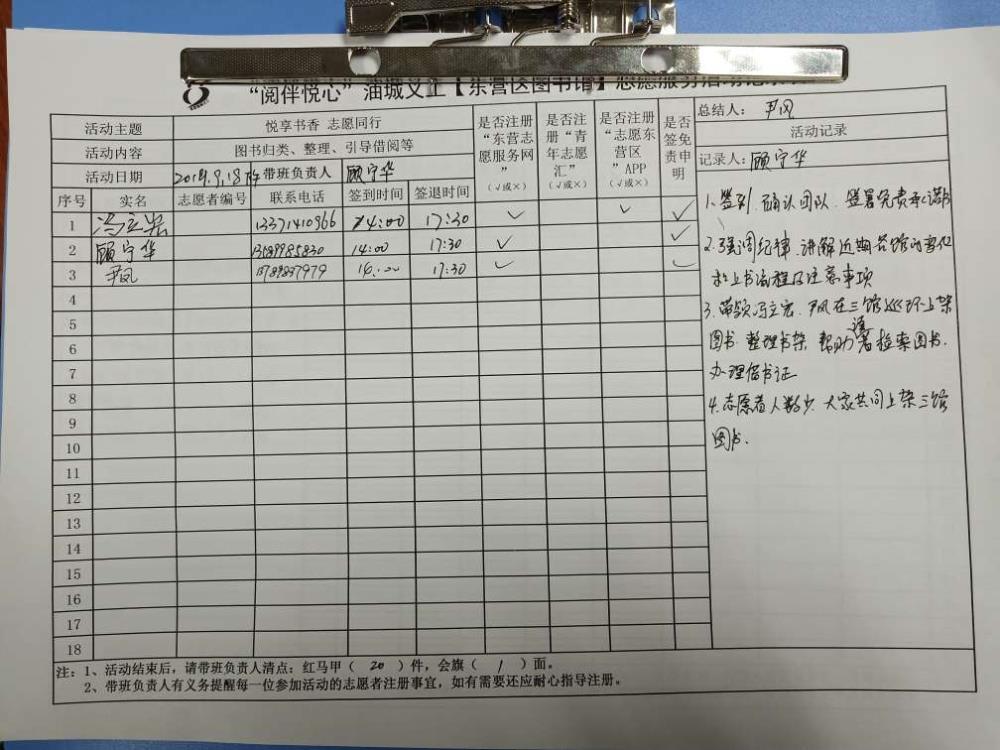 “阅伴悦心”油城义工【东营区图书馆】志愿服务活动记录
活动主题 悦享书香 志愿同行
活动内容 图书归类、整理、引导借阅等
活动日期 2019.9.18 带班负责人 顾宁华
序号 实名 志愿者编号 联系电话 签到时间 签退时间 是否注册“东营志愿服务网”（√或×） 是否注册“青年志愿汇”（√或×） 是否注册“志愿东营区”APP（√或×） 是否签免责申明
1 冯立宏 13371410966 14:00 17:30 √ √ √
2 顾宁华 14:00 17:30 √ √
3 尹凤 17:30 √ √
4
5
6
7
8
9
10
11
12
13
14
15
16
17
18
总结人：尹凤
活动记录
记录人：顾宁华
1.签到.确认团队.签署免责承诺书
2.强调纪律.讲解近期各馆的变化
和上书流程及注意事项
3.带领冯立宏.尹凤在三馆巡环上架
图书.整理书架.帮助读者检索图书.
办理借书证
4.志愿者人数少.大家共同上架三馆
图书.
注：1、活动结束后，请带班负责人清点：红马甲（ 20 ）件，会旗（ 1 ）面。
2、带班负责人有义务提醒每一位参加活动的志愿者注册事宜，如有需要还应耐心指导注册。